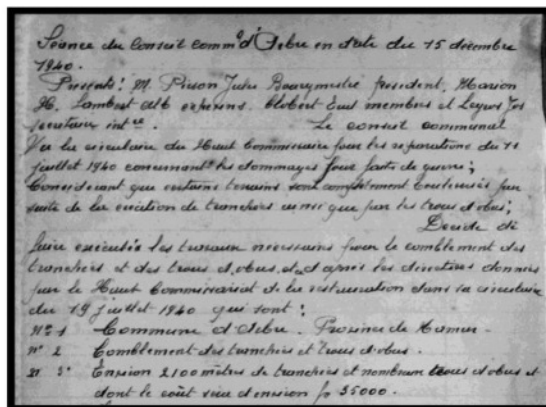 Séance du Conseil comml d'Orbre en date du 15 décembre
1940.
Présents: M. Pirson Jules Bourgmestre président, Marion
H. Lambert Alb échevins. Clobert Emil membres et
secrétaire intre. Le conseil communal
Vu la circulaire du Haut Commissaire pour les réparations du
juillet 1940 concernant les dommages pour faits de guerre;
Considérant que certains terrains sont complètement par
suite de la création de tranchées ainsi que par les trous d'obus;
Décide de
faire exécuter les travaux nécessaires pour le comblement des
tranchées et des trous d'obus, d'après les directives données
par le Haut Commissariat de la restauration dans sa circulaire
du 19 juillet 1940 qui sont:
N° 1 Commune d' Province de Namur -
n° 2 Comblement des tranchées et trous d'obus.
n° 3° Environ 2100 mètres de tranchées et nombreux trous d'obus et
dont le coût sera d'environ fr 35000.